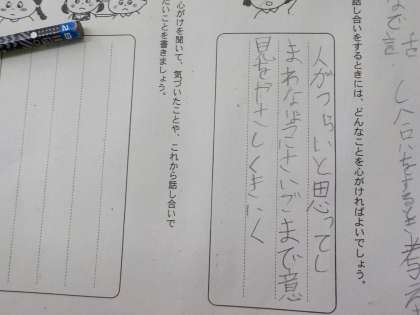 し合いをするとき考え
話し合いをするときには、どんなことを心がければよいでしょう。
人がつらいと思ってし
まわなようにさいごまで意
見をやさしくきく
心がけを聞いて、気づいたことや、これから話し合いで
たいことを書きましょう。